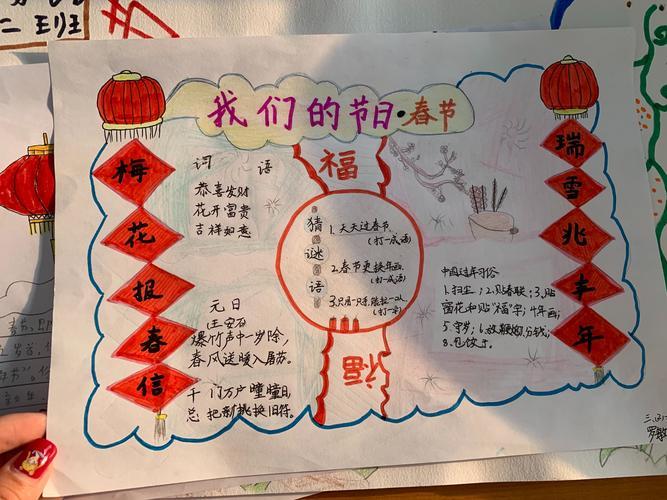 二班
我们的节日·春节
梅花报春信
瑞雪兆丰年
词语
恭喜发财
花开富贵
吉祥如意
元日
王安石
爆竹声中一岁除,
春风送暖入屠苏。
千门万户曈曈日,
总把新桃换旧符。
福
猜谜语
1.天天过春节
(打一成语)
2.春节更换年画
(打一成语)
福
中国过年习俗
1.扫尘;2.贴春联;3.贴
窗花和贴“福”字;4.年画;
5.守岁;6.放鞭炮;分钱;
8.包饺子。